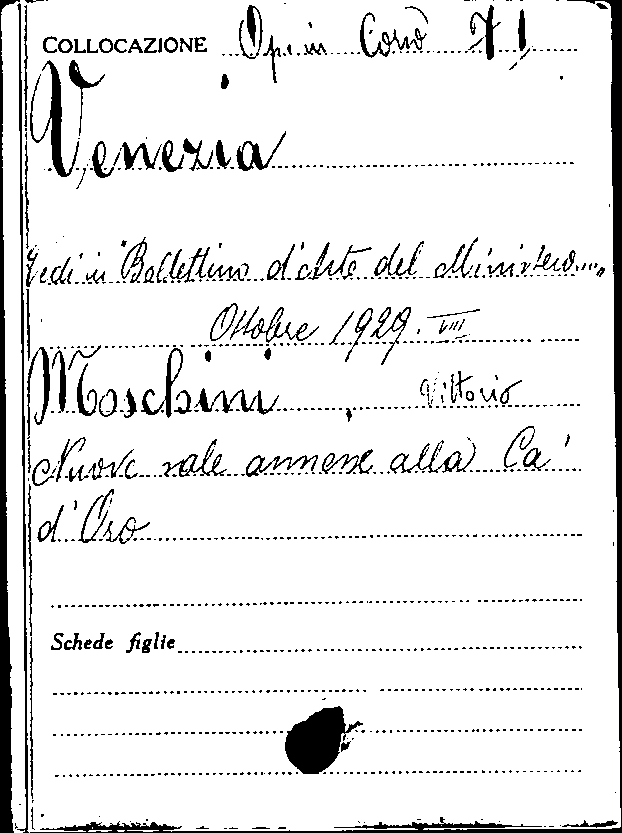 COLLOCAZIONE Op. in Corso 71
Venezia
Vedi in "Bollettino d'Arte del Ministero...."
Ottobre 1929. VIII
Moschini, Vittorio
Nuove sale annesse alla Ca'
d'Oro
Schede figlie